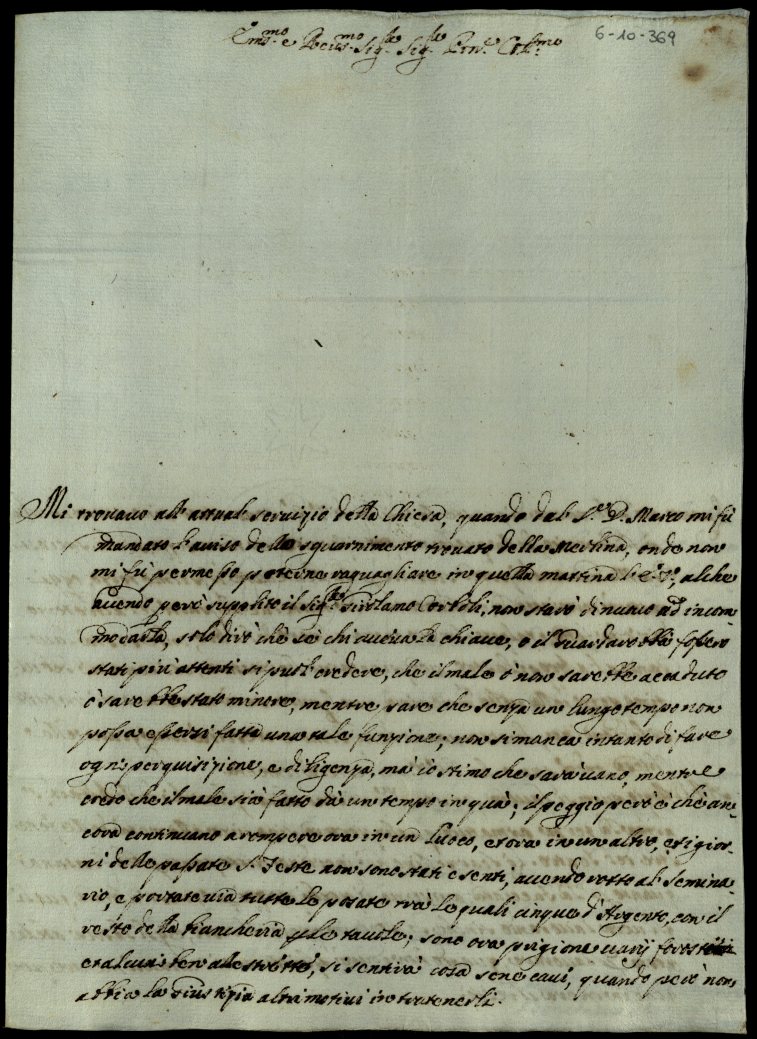 Em.mo e Reu.mo Sig.re Sig.re Pron.e Col.mo
6-10-369
Mi trouauo all'attual seruizio della Chiesa, quando dal S.r D. Marco mi fù
mandato l'auiso dello sguarnimento trouato della Medina, onde non
mi fù permesso poterne raguagliare in quella mattina l'E. V., al che
auendo però supplito il Sig.re Girolamo Corboli, non starò di nuouo ad incom
modarla, solo dirò chè se chi aueua la chiaue, o il Guardarobba fossero
stati più attenti si può credere, che il male ò non sarebbe accaduto
ò sarebbe stato minore, mentre pare che senza un lungo tempo non
possa essersi fatta una tale funzione; non si manca intanto di fare
ogni perquisizione, e diligenza, mà io stimo che sarà uano, mentre
credo che il male sia fatto dà un tempo in quà; il peggio però è chè an
cora continuano a rompere ora in un luoco, et ora in un altro, e i gior
ni delle passate S.te Feste non sono stati esenti, auendo rotto al Semina
rio, e portate uia tutte le posate trà le quali cinque d'Argento, con il
resto della biancheria p le tauole; sono ora prigione uarij forostieri
et alcuni ben alle strette, si sentirà cosa se ne caui, quando però non
abbia la Giustizia altri motiui in tratenerli.